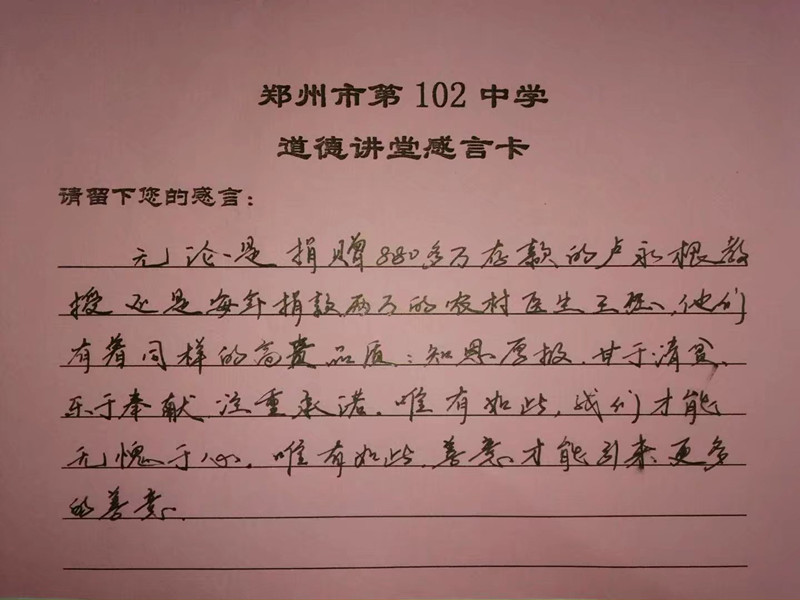 郑州市第 102 中学
道德讲堂感言卡
请留下您的感言：
无论是捐赠880多万存款的卢永根教
授还是每年捐款两万的农村医生王，他们
有着同样的高贵品质：知恩厚报，甘于清贫，
乐于奉献，注重承诺。唯有如此，我们才能
无愧于心。唯有如此，善意才能引来更多
的善意。